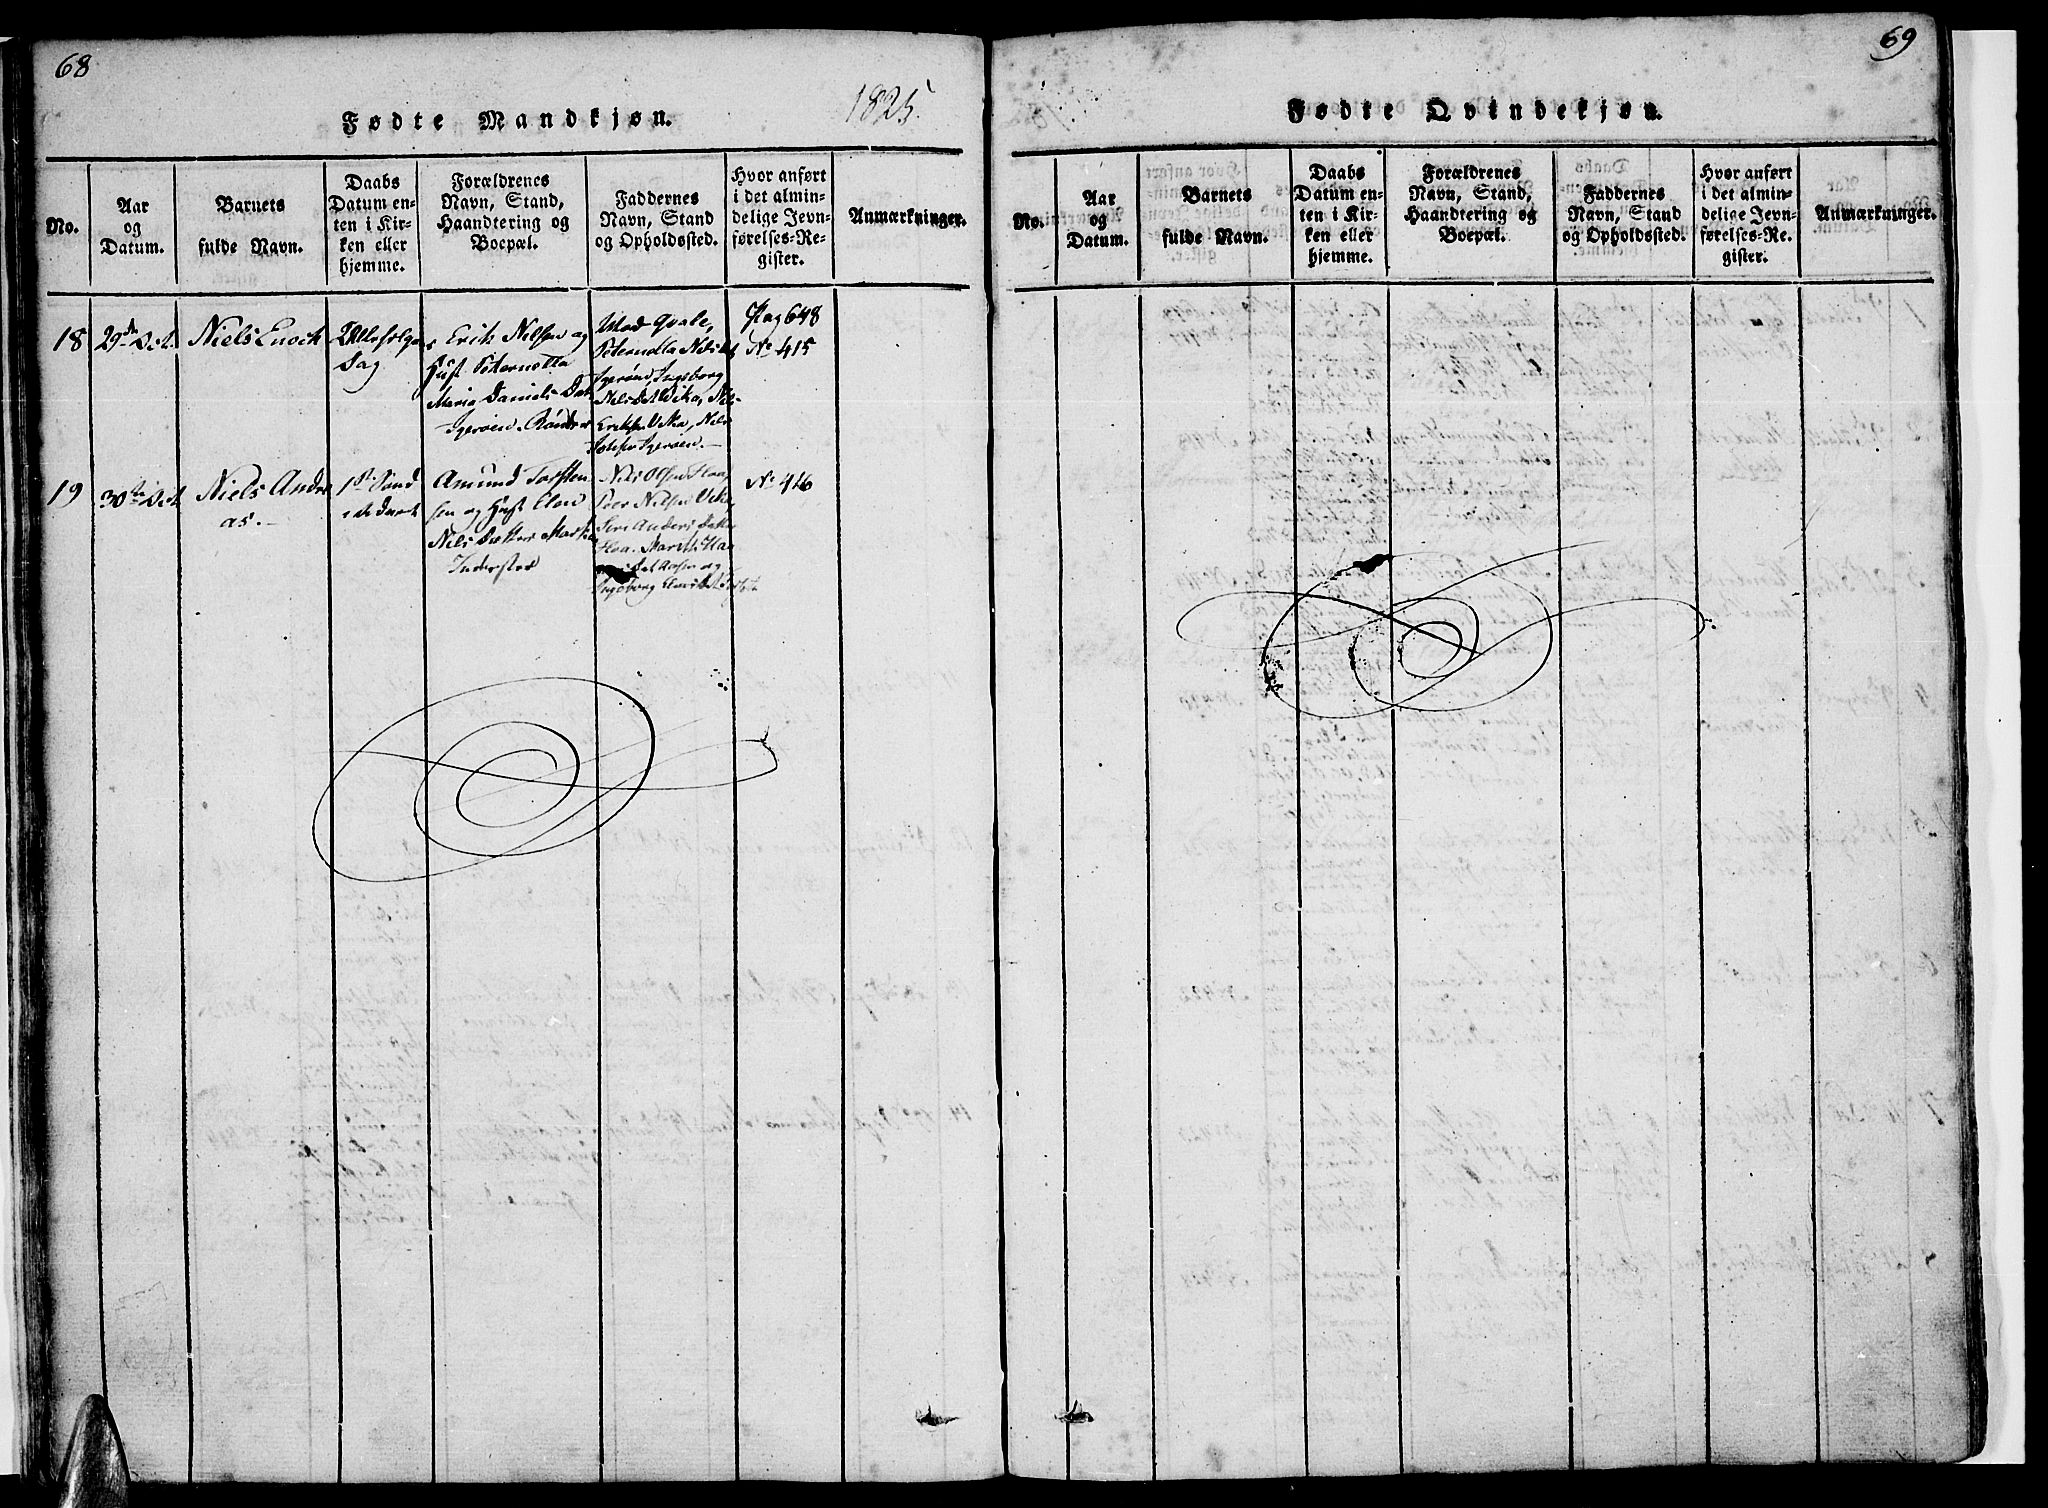 68
1825.
Fødte Mandkjøn.
No.
Aar
og
Datum.
Barnets
fulde Navn.
Daabs
Datum en-
ten i Kir-
ken eller
hjemme.
Forældrenes
Navn, Stand,
Haandtering og
Boepæl.
Faddernes
Navn, Stand
og Opholdssted.
Hvor anført
i det almin-
delige Jevn-
førelses-Re-
gister.
Anmærkninger.
18
29de Oct.
Niels Enoch
Allehelgen
Dag
Erik Nilsen og
Hust Peternella
Maria Daniels Dat
Igerøen
Peternella Nils
Igerøen, Ingeborg
Nils Dat Vika,
Eriksen Vika, Nils
Igerøen.
Pag 648
No 415
19
30te Oct
Niels Andre
as.
1ste Sønd
i Advent
Amund Torsten
sen og Hust Elen
Nils Datter
Nils Olsen Floa
Peer Nilsen Vika,
Anders Datter
Floa. Mareth
og
Ingeborg
No 416
69
Fødte Qvindekjøn.
No.
Aar
og
Datum.
Barnets
fulde Navn.
Daabs
Datum en-
ten i Kir-
ken eller
hjemme.
Forældrenes
Navn, Stand,
Haandtering og
Boepæl.
Faddernes
Navn, Stand
og Opholdssted.
Hvor anført
i det almin-
delige Jevn-
førelses-Re-
gister.
Anmærkninger.